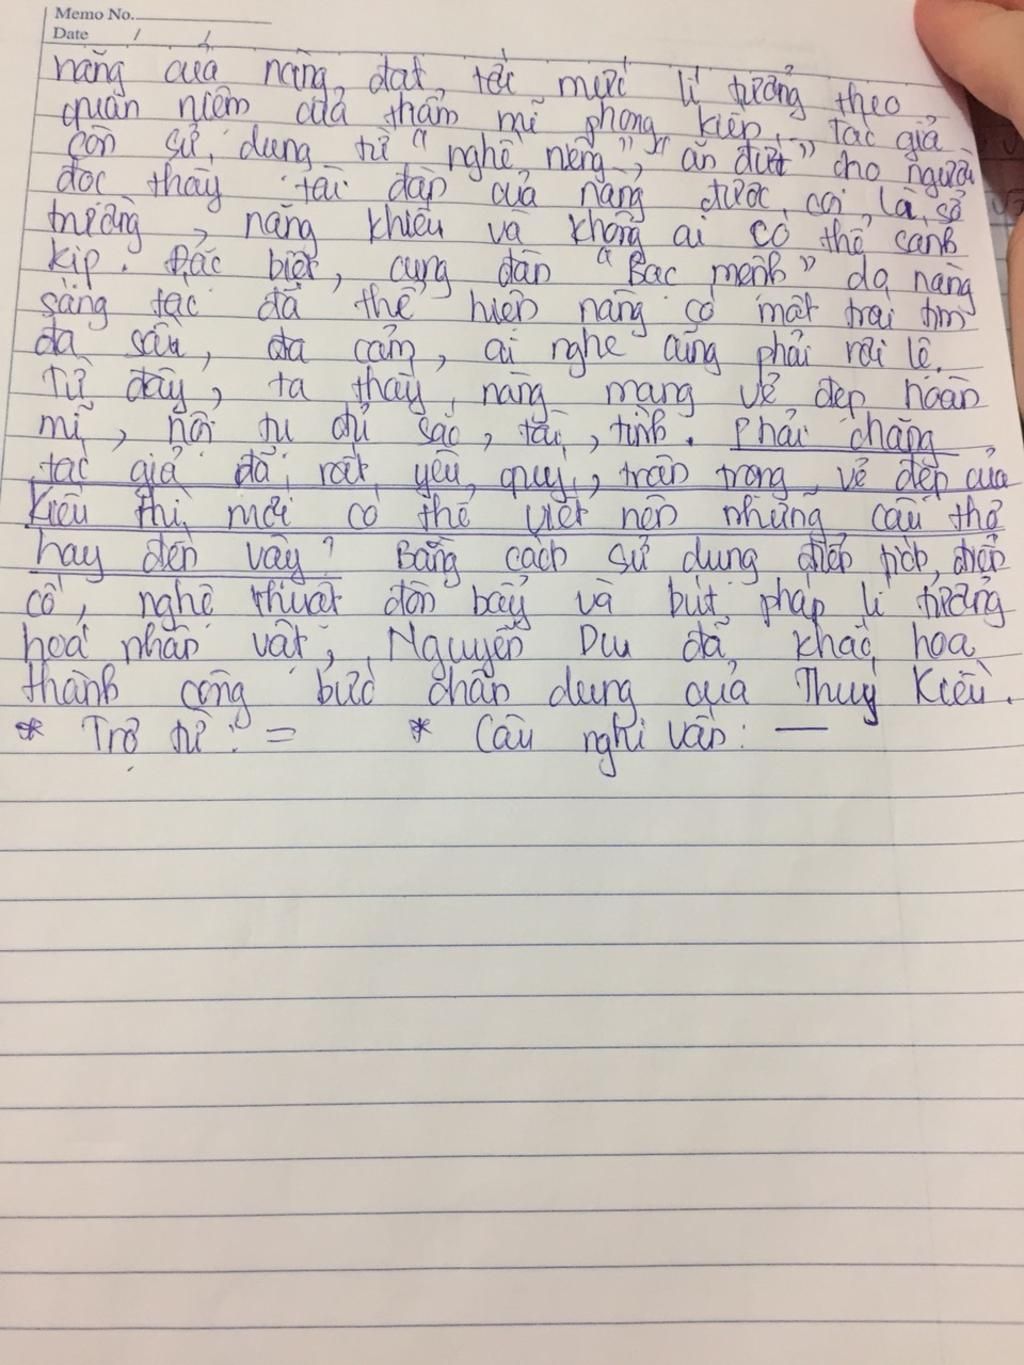 Memo No.
Date / /
năng của nàng đạt tới mức lí tưởng theo
quan niệm của thẩm mĩ phong kiến, tác giả
còn sử dụng từ "nghề riêng", "ăn đứt" cho người
đọc thấy tài đàn của nàng được coi là sở
trường, năng khiếu và không ai có thể sánh
kịp. Đặc biệt, cung đàn "Bạc mệnh" do nàng
sáng tác đã thể hiện nàng có một trái tim
đa sầu, đa cảm, ai nghe cũng phải rơi lệ.
Từ đây, ta thấy nàng mang vẻ đẹp hoàn
mĩ, hội tụ đủ sắc, tài, tình. Phải chăng
tác giả đã rất yêu quý, trân trọng vẻ đẹp của
Kiều thì mới có thể viết nên những câu thơ
hay đến vậy? Bằng cách sử dụng điển tích, điển
cố, nghệ thuật đòn bẩy và bút pháp lí tưởng
hoá nhân vật, Nguyễn Du đã khắc hoạ
thành công bức chân dung của Thuý Kiều.
* Trợ từ: = * Câu nghi vấn: —